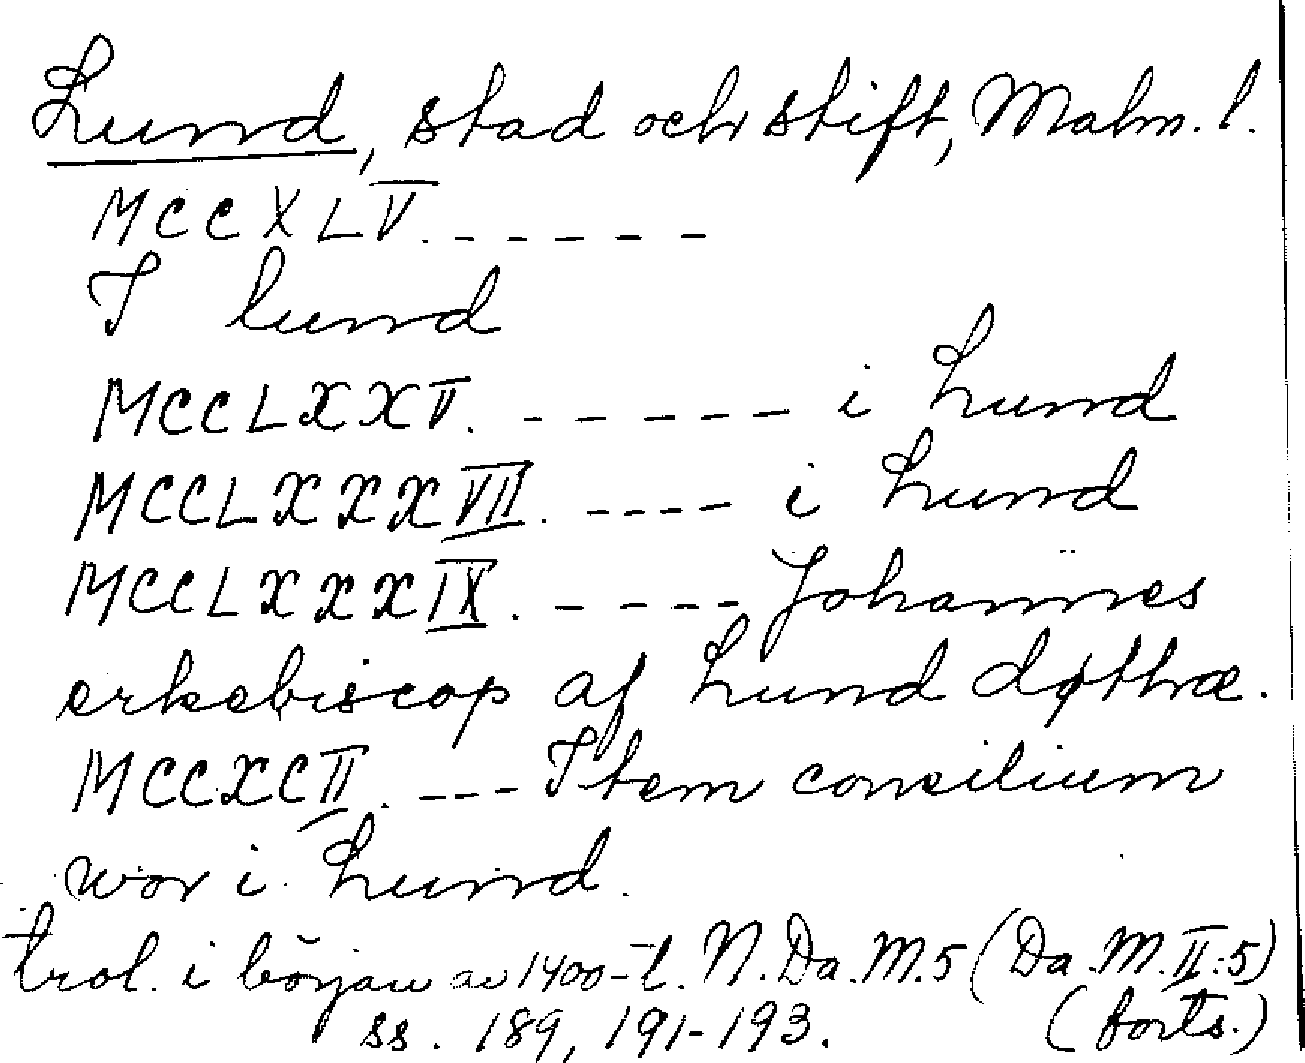 Lund, stad och stift, Malm. l.
MCCXLV. - - - - - -
I lund
MCCLXXV. - - - - - i Lund
MCCLXXXVII. - - - - i Lund
MCCLXXXIX. - - - - Johannes
erkebiscop af Lund døthræ.
MCCXCII. - - - Item consilium
wor i Lund.
trol. i början av 1400-t. N.Da.M.5 (Da.M.II:5)
ss. 189, 191-193. (forts.)